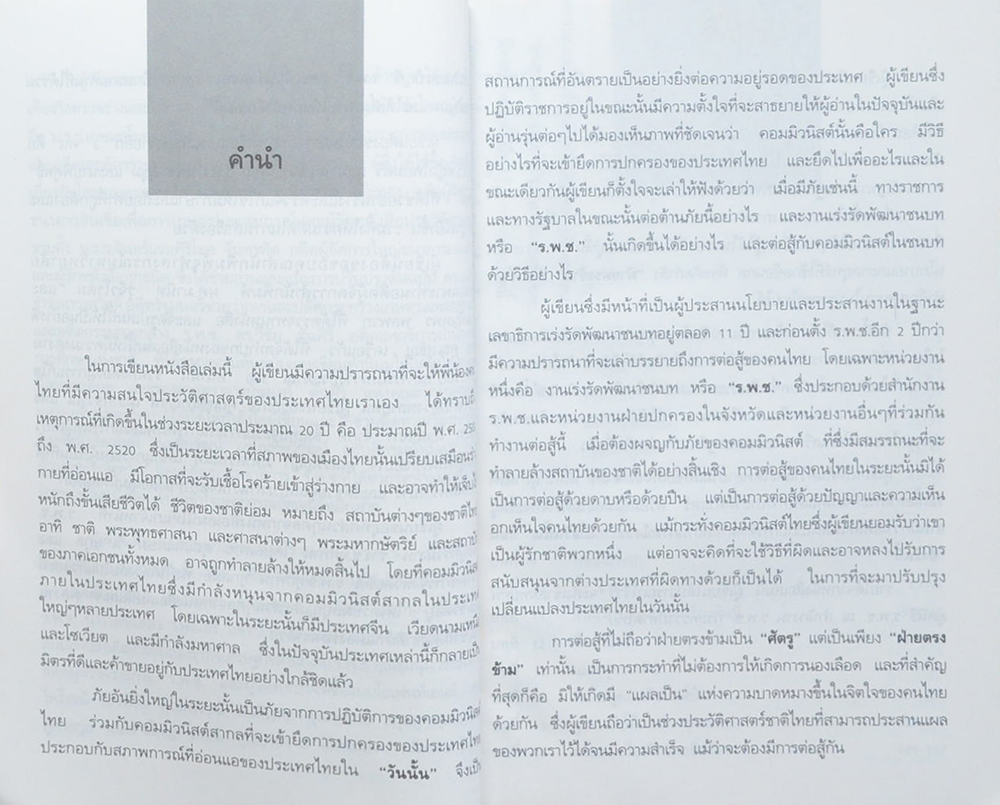 คำนำ
ในการเขียนหนังสือเล่มนี้ ผู้เขียนมีความปรารถนาที่จะให้พี่น้อง
ไทยที่มีความสนใจประวัติศาสตร์ของประเทศไทยเราเอง ได้ทราบ
เหตุการณ์ที่เกิดขึ้นในช่วงระยะเวลาประมาณ 20 ปี คือ ประมาณปี พ.ศ.
ถึง พ.ศ. 2520 ซึ่งเป็นระยะเวลาที่สภาพของเมืองไทยนั้นเปรียบเสมือน
กายที่อ่อนแอ มีโอกาสที่จะรับเชื้อโรคร้ายเข้าสู่ร่างกาย และอาจทำให้
หนักถึงขั้นเสียชีวิตได้ ชีวิตของชาติย่อม หมายถึง สถาบันต่างๆของชาติ
อาทิ ชาติ พระพุทธศาสนา และศาสนาต่างๆ พระมหากษัตริย์ และ
ของภาคเอกชนทั้งหมด อาจถูกทำลายล้างให้หมดสิ้นไป โดยที่
ภายในประเทศไทยซึ่งมีกำลังหนุนจากคอมมิวนิสต์สากลใน
ใหญ่ๆหลายประเทศ โดยเฉพาะในระยะนั้นก็มีประเทศจีน
และโซเวียต และมีกำลังมหาศาล ซึ่งในปัจจุบันประเทศเหล่านี้ก็
มิตรที่ดีและค้าขายอยู่กับประเทศไทยอย่างใกล้ชิดแล้ว
ภัยอันยิ่งใหญ่ในระยะนั้นเป็นภัยจากการปฏิบัติการของ
ไทย ร่วมกับคอมมิวนิสต์สากลที่จะเข้ายึดการปกครองของ
ประกอบกับสภาพการณ์ที่อ่อนแอของประเทศไทยใน “วันนั้น”
สถานการณ์ที่อันตรายเป็นอย่างยิ่งต่อความอยู่รอดของประเทศ ผู้เขียนซึ่ง
ปฏิบัติราชการอยู่ในขณะนั้นมีความตั้งใจที่จะสาธยายให้ผู้อ่านในปัจจุบันและ
ผู้อ่านรุ่นต่อๆไปได้มองเห็นภาพที่ชัดเจนว่า คอมมิวนิสต์นั้นคือใคร มีวิธี
อย่างไรที่จะเข้ายึดการปกครองของประเทศไทย และยึดไปเพื่ออะไรและใน
ขณะเดียวกันผู้เขียนก็ตั้งใจจะเล่าให้ฟังด้วยว่า เมื่อมีภัยเช่นนี้ ทางราชการ
และทางรัฐบาลในขณะนั้นต่อต้านภัยนี้อย่างไร และงานเร่งรัดพัฒนาชนบท
หรือ “ร.พ.ช.” นั้นเกิดขึ้นได้อย่างไร และต่อสู้กับคอมมิวนิสต์ในชนบท
ด้วยวิธีอย่างไร
ผู้เขียนซึ่งมีหน้าที่เป็นผู้ประสานนโยบายและประสานงานในฐานะ
เลขาธิการเร่งรัดพัฒนาชนบทอยู่ตลอด 11 ปี และก่อนตั้ง ร.พ.ช.อีก 2 ปีกว่า
มีความปรารถนาที่จะเล่าบรรยายถึงการต่อสู้ของคนไทย โดยเฉพาะหน่วยงาน
หนึ่งคือ งานเร่งรัดพัฒนาชนบท หรือ “ร.พ.ช.” ซึ่งประกอบด้วยสำนักงาน
ร.พ.ช.และหน่วยงานฝ่ายปกครองในจังหวัดและหน่วยงานอื่นๆที่ร่วมกัน
ทำงานต่อสู้นี้ เมื่อต้องผจญกับภัยของคอมมิวนิสต์ ที่ซึ่งมีสมรรถนะที่จะ
ทำลายล้างสถาบันของชาติได้อย่างสิ้นเชิง การต่อสู้ของคนไทยในระยะนั้นมิได้
เป็นการต่อสู้ด้วยดาบหรือด้วยปืน แต่เป็นการต่อสู้ด้วยปัญญาและความเห็น
อกเห็นใจคนไทยด้วยกัน แม้กระทั่งคอมมิวนิสต์ไทยซึ่งผู้เขียนยอมรับว่าเขา
เป็นผู้รักชาติพวกหนึ่ง แต่อาจจะคิดที่จะใช้วิธีที่ผิดและอาจหลงไปรับการ
สนับสนุนจากต่างประเทศที่ผิดทางด้วยก็เป็นได้ ในการที่จะมาปรับปรุง
เปลี่ยนแปลงประเทศไทยในวันนั้น
การต่อสู้ที่ไม่ถือว่าฝ่ายตรงข้ามเป็น “ศัตรู” แต่เป็นเพียง “ฝ่ายตรง
ข้าม” เท่านั้น เป็นการกระทำที่ไม่ต้องการให้เกิดการนองเลือด และที่สำคัญ
ที่สุดก็คือ มิให้เกิดมี “แผลเป็น” แห่งความบาดหมางขึ้นในจิตใจของคนไทย
ด้วยกัน ซึ่งผู้เขียนถือว่าเป็นช่วงประวัติศาสตร์ชาติไทยที่สามารถประสานแผล
ของพวกเราไว้ได้จนมีความสำเร็จ แม้ว่าจะต้องมีการต่อสู้กัน